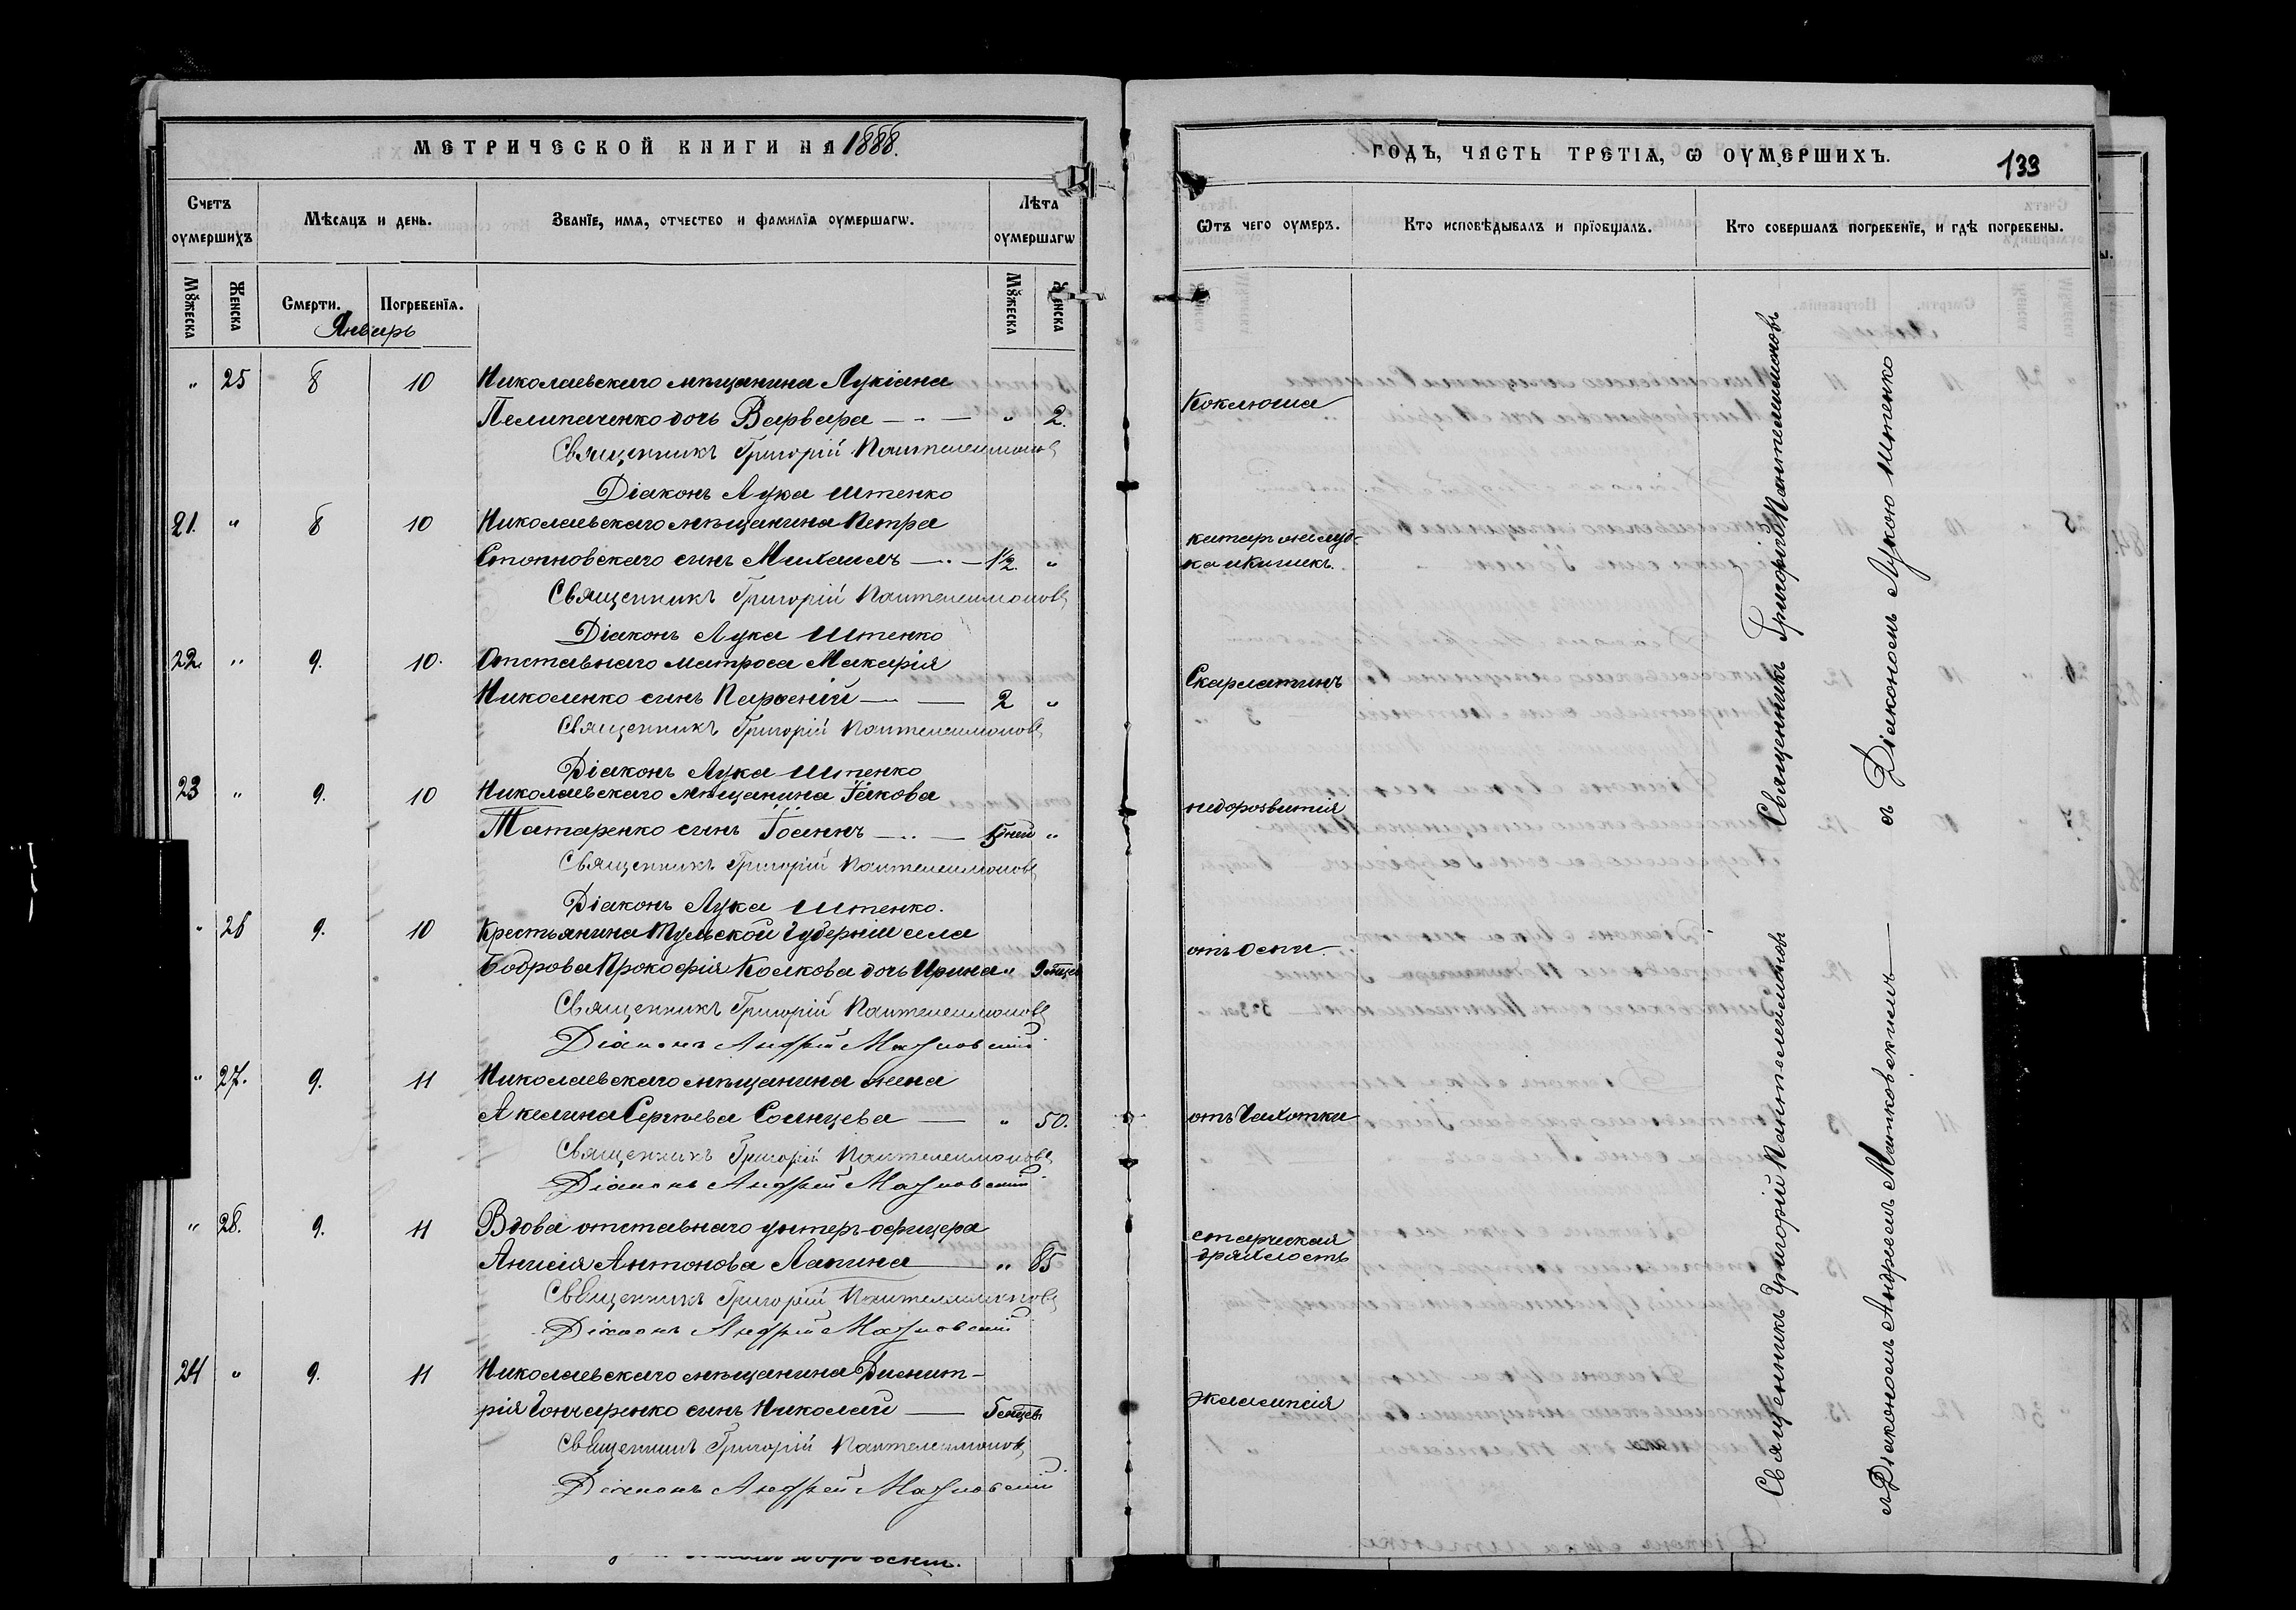 МЕТРИЧЕСКОЙ КНИГИ НА 1888.
Счетъ оумершихъ
Мѣсяцъ и день.
Званїе, имѧ, отчество и фамилїа оумершагѡ.
Лѣта оумершагѡ
Мꙋжеска
Женска
Смерти.
Погребенїѧ.
Мꙋжеска
Женска
Январь
" 25 8 10 Николаевскаго мѣщанина Лукіана
Пелипаченко дочь Варвара " 2.
Священникъ Григорій Пантелеимоновъ
Діаконъ Лука Штенко
21. " 8 10 Николаевскаго мѣщанина Петра
сынъ Михаилъ 1½. "
Священникъ Григорій Пантелеимоновъ
Діаконъ Лука Штенко
22. " 9. 10. Отставнаго матроса Макарія
Николенко сынъ Парѳеній 2 "
Священникъ Григорій Пантелеимоновъ
Діаконъ Лука Штенко
23 " 9. 10 Николаевскаго мѣщанина Іакова
Татаренко сынъ Іоаннъ 5 дней "
Священникъ Григорій Пантелеимоновъ
Діаконъ Лука Штенко.
" 26 9. 10 Крестьянина Тульской Губерніи села
Боброва Прокофія Колкова дочь Ирина " 9 мѣцев
Священникъ Григорій Пантелеимоновъ
Діаконъ Андрей
" 27. 9. 11 Николаевскаго мѣщанина жена
Акилина Сергѣева Солнцева " 50.
Священникъ Григорій Пантелеимоновъ
Діаконъ Андрей
" 28. 9. 11 Вдова отставнаго унтеръ-офицера
Анисія Антонова Лапина " 85
Священникъ Григорій Пантелеимоновъ
Діаконъ Андрей
24 " 9. 11 Николаевскаго мѣщанина Димит-
рія Гончаренко сынъ Николай 5 мѣцевъ
Священникъ Григорій Пантелеимоновъ
Діаконъ Андрей
ГОДЪ, ЧАСТЬ ТРЕТІѦ, Ѡ ОУМЕРШИХЪ.
133
Ѿтъ чего оумеръ.
Кто исповѣдывалъ и прїобщалъ.
Кто совершалъ погребенїе, и гдѣ погребены.
Коклюша
катаръ желуд-
ка и Кишекъ.
Скарлатинъ
недоразвитія
отъ Оспы.
отъ Чахотки
старческая
дряхлость
эклампсія
Священникъ Григорій Пантелеимоновъ
съ Діакономъ Лукою Штенко
Священникъ Григорій Пантелеимоновъ
съ Діакономъ Андреемъ